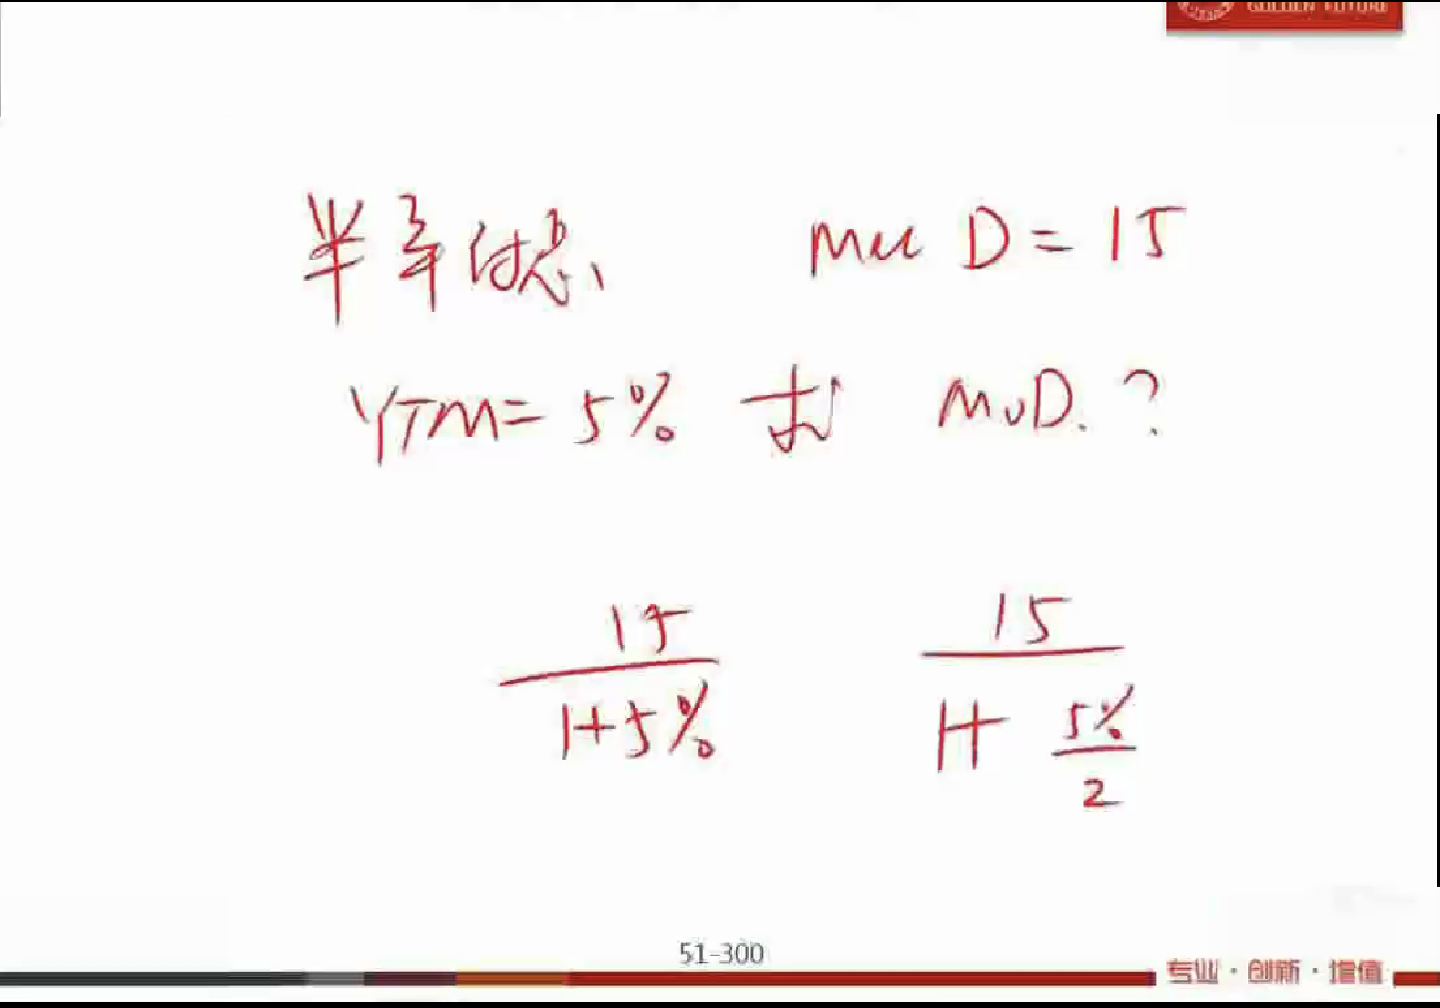 GOLDEN FUTURE
半年付息、 Mac D = 15
YTM = 5% 求 MoD. ?
15
1+5%
15
1+ 5%
2
51-300
专业·创新·增值